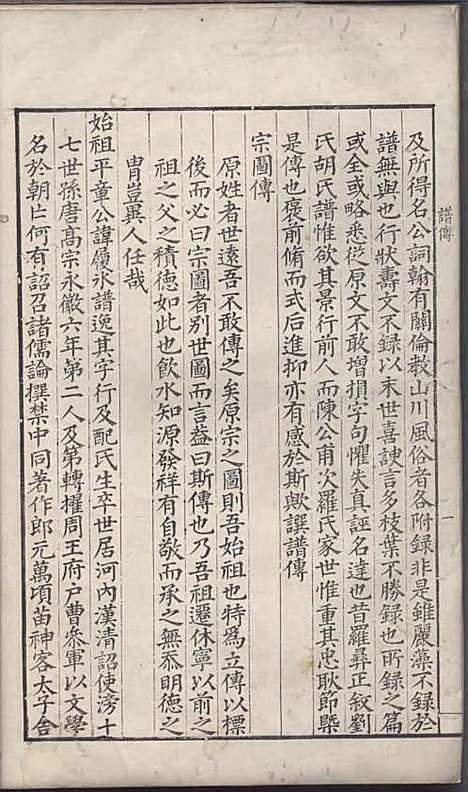 譜傳
一
及所得名公詞翰有關倫敎山川風俗者各附錄非是雖麗藻不錄於
譜無與也行狀壽文不錄以末世喜諛言多枝葉不勝錄也所錄之篇
或全或略悉從原文不敢增損字句懼失真誣名違也昔羅彞正敘劉
氏胡氏譜惟欲其景行前人而陳公甫次羅氏家世惟重其忠耿節槩
是傳也褒前脩而式后進抑亦有感於斯歟譔譜傳
宗圖傳
原姓者世遠吾不敢傳之矣原宗之圖則吾始祖也特為立傳以標
後而必曰宗圖者别世圖而言益曰斯傳也乃吾祖遷休寧以前之
祖之父之積德如此也飲水知源發祥有自敬而承之無忝明德之
胄豈異人任哉
始祖平章公諱履氷譜逸其字行及配氏生卒世居河內漢清詔使滂十
七世孫唐高宗永徽六年第二人及第轉擢周王府戶曹叅軍以文學
名於朝𠂤何有詔召諸儒論撰禁中同著作郎元萬頃苗神客太子舎